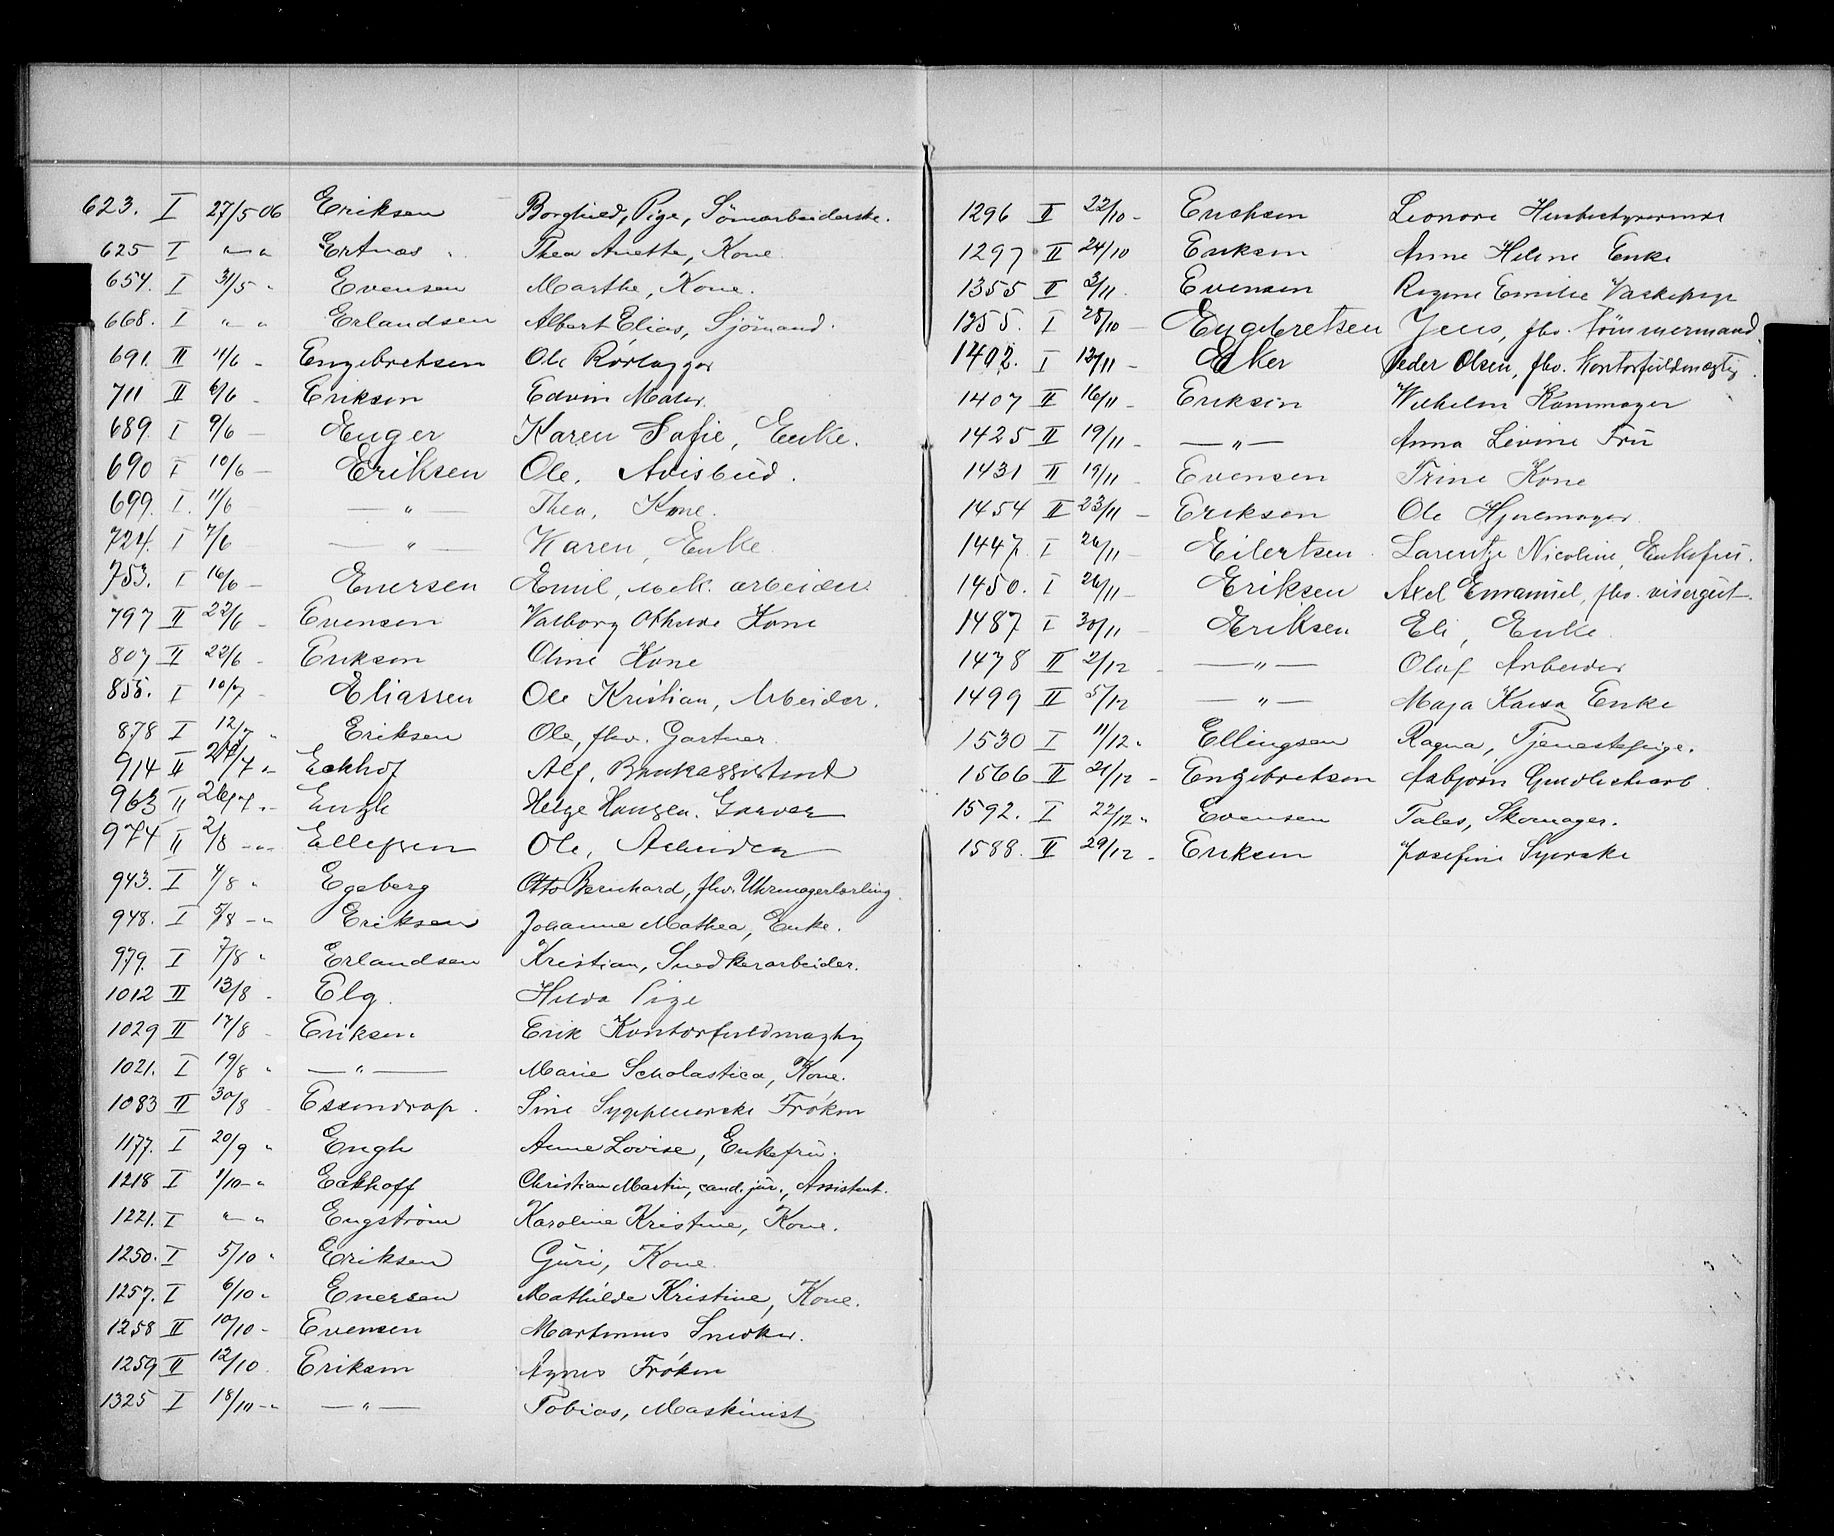 623. I 27/5 06 Eriksen Borghild, Pige, Sömarbeiderske.
625 I " " Ertnæs Thea Anette, Kone.
654. I 31/5 " Evensen Marthe, Kone.
668. I " " Erlandsen Albert Elias, Sjömand.
691. II 4/6 - Engebretsen Ole Rørlægger
711 II 6/6 - Eriksen Edvin Maler.
689. I 9/6 - Enger Karen Sofie, Enke.
690 I 10/6 - Eriksen Ole, Avisbud.
699. I. 11/6 — " — Thea, Kone.
724. I 7/6 — " — Karen, Enke.
753. I 16/6 - Enersen Emil, mek. arbeider.
797 II 22/6 - Evensen Valborg Othilde Kone
807 II 22/6 - Eriksen Oline Kone
855. I 10/7 - Eliassen Ole Kristian, Arbeider.
878 I 12/7 " Eriksen Ole, fhv. Gartner.
914 II 24/7 " Eckhof Alf, Bankassistend
963 II 26/7 " Engh Helge Hansen, Garver
974 II 2/8 - " Ellefsen Ole, Arbeider
943. I 4/8 " Egeberg Otto Bernhard, fhv. Uhrmagerlærling.
948. I 5/8 - " Eriksen Johanne Mathea, Enke.
979. I 7/8 " Erlandsen Kristian, Snedkerarbeider.
1012 II 13/8 - Elg. Hilda Pige
1029 II 17/8 - Eriksen Erik Kontorfuldmægtig
1021. I 19/8 " — " — Marie Scholastica, Kone.
1083 II 30/8 - Essendrop. Sine Sygepleierske Frøken
1177. I 20/9 " Engh Anne Lovise, Enkefru.
1218 I 1/10 - " Eckhoff Christian Martin, cand. jur., Assistent.
1221. I " " Engström Karoline Kristine, Kone.
1250. I 5/10 " Eriksen Guri, Kone.
1257. I 6/10 " Enersen Mathilde Kristine, Kone.
1258 II 10/10 - Evensen Martinius Snedker.
1259 II 12/10. Eriksen Agnes Frøken
1325 I 18/10 - " — " — Tobias, Maskinist
1296 II 22/10 - Erichsen Leonore Husbestyrerinde
1297 II 24/10 Eriksen Anne Helene Enke
1355 II 3/11. Evensen Ragne Emilie Vaskepige
1255. I 28/10 - Engebretsen Jens, fhv. Tömmermand.
1402. I 13/11 - Eker Peder Olsen, fhv. Kontorfuldmægtig.
1407 II 16/11 - Eriksen Wilhelm Kammager
1425 II 19/11 - — " — Anna Levine Fru
1431 II 19/11 - Evensen Trine Kone
1454 II 23/11 - Eriksen Ole Hjulmager.
1447. I 26/11 - Eilertsen Larentze Nicoline, Enkefru.
1450. I 26/11 - Eriksen Axel Emanuel, fhv. visergut.
1487 I 30/11 - Eriksen Eli, Enke.
1478 II 2/12 - — " — Olaf Arbeider
1499 II 5/12 — " — Maja Kaisa Enke
1530 I 11/12 " Ellingsen Ragna, Tjenestepige.
1566 II 21/12 - Engebretsen Asbjørn
1592. I 22/12 " Evensen Skomager.
1588. II 29/12 - Eriksen Josefine Syerske